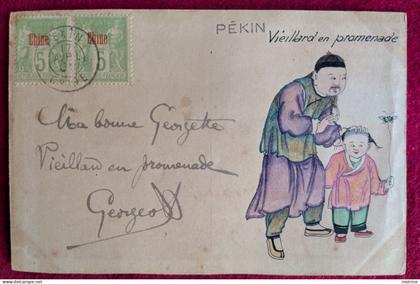 PÉKIN
Vieillard en promenade
Chine Chine
5 5
Ma bonne Georgette
Vieillard en promenade
Georges